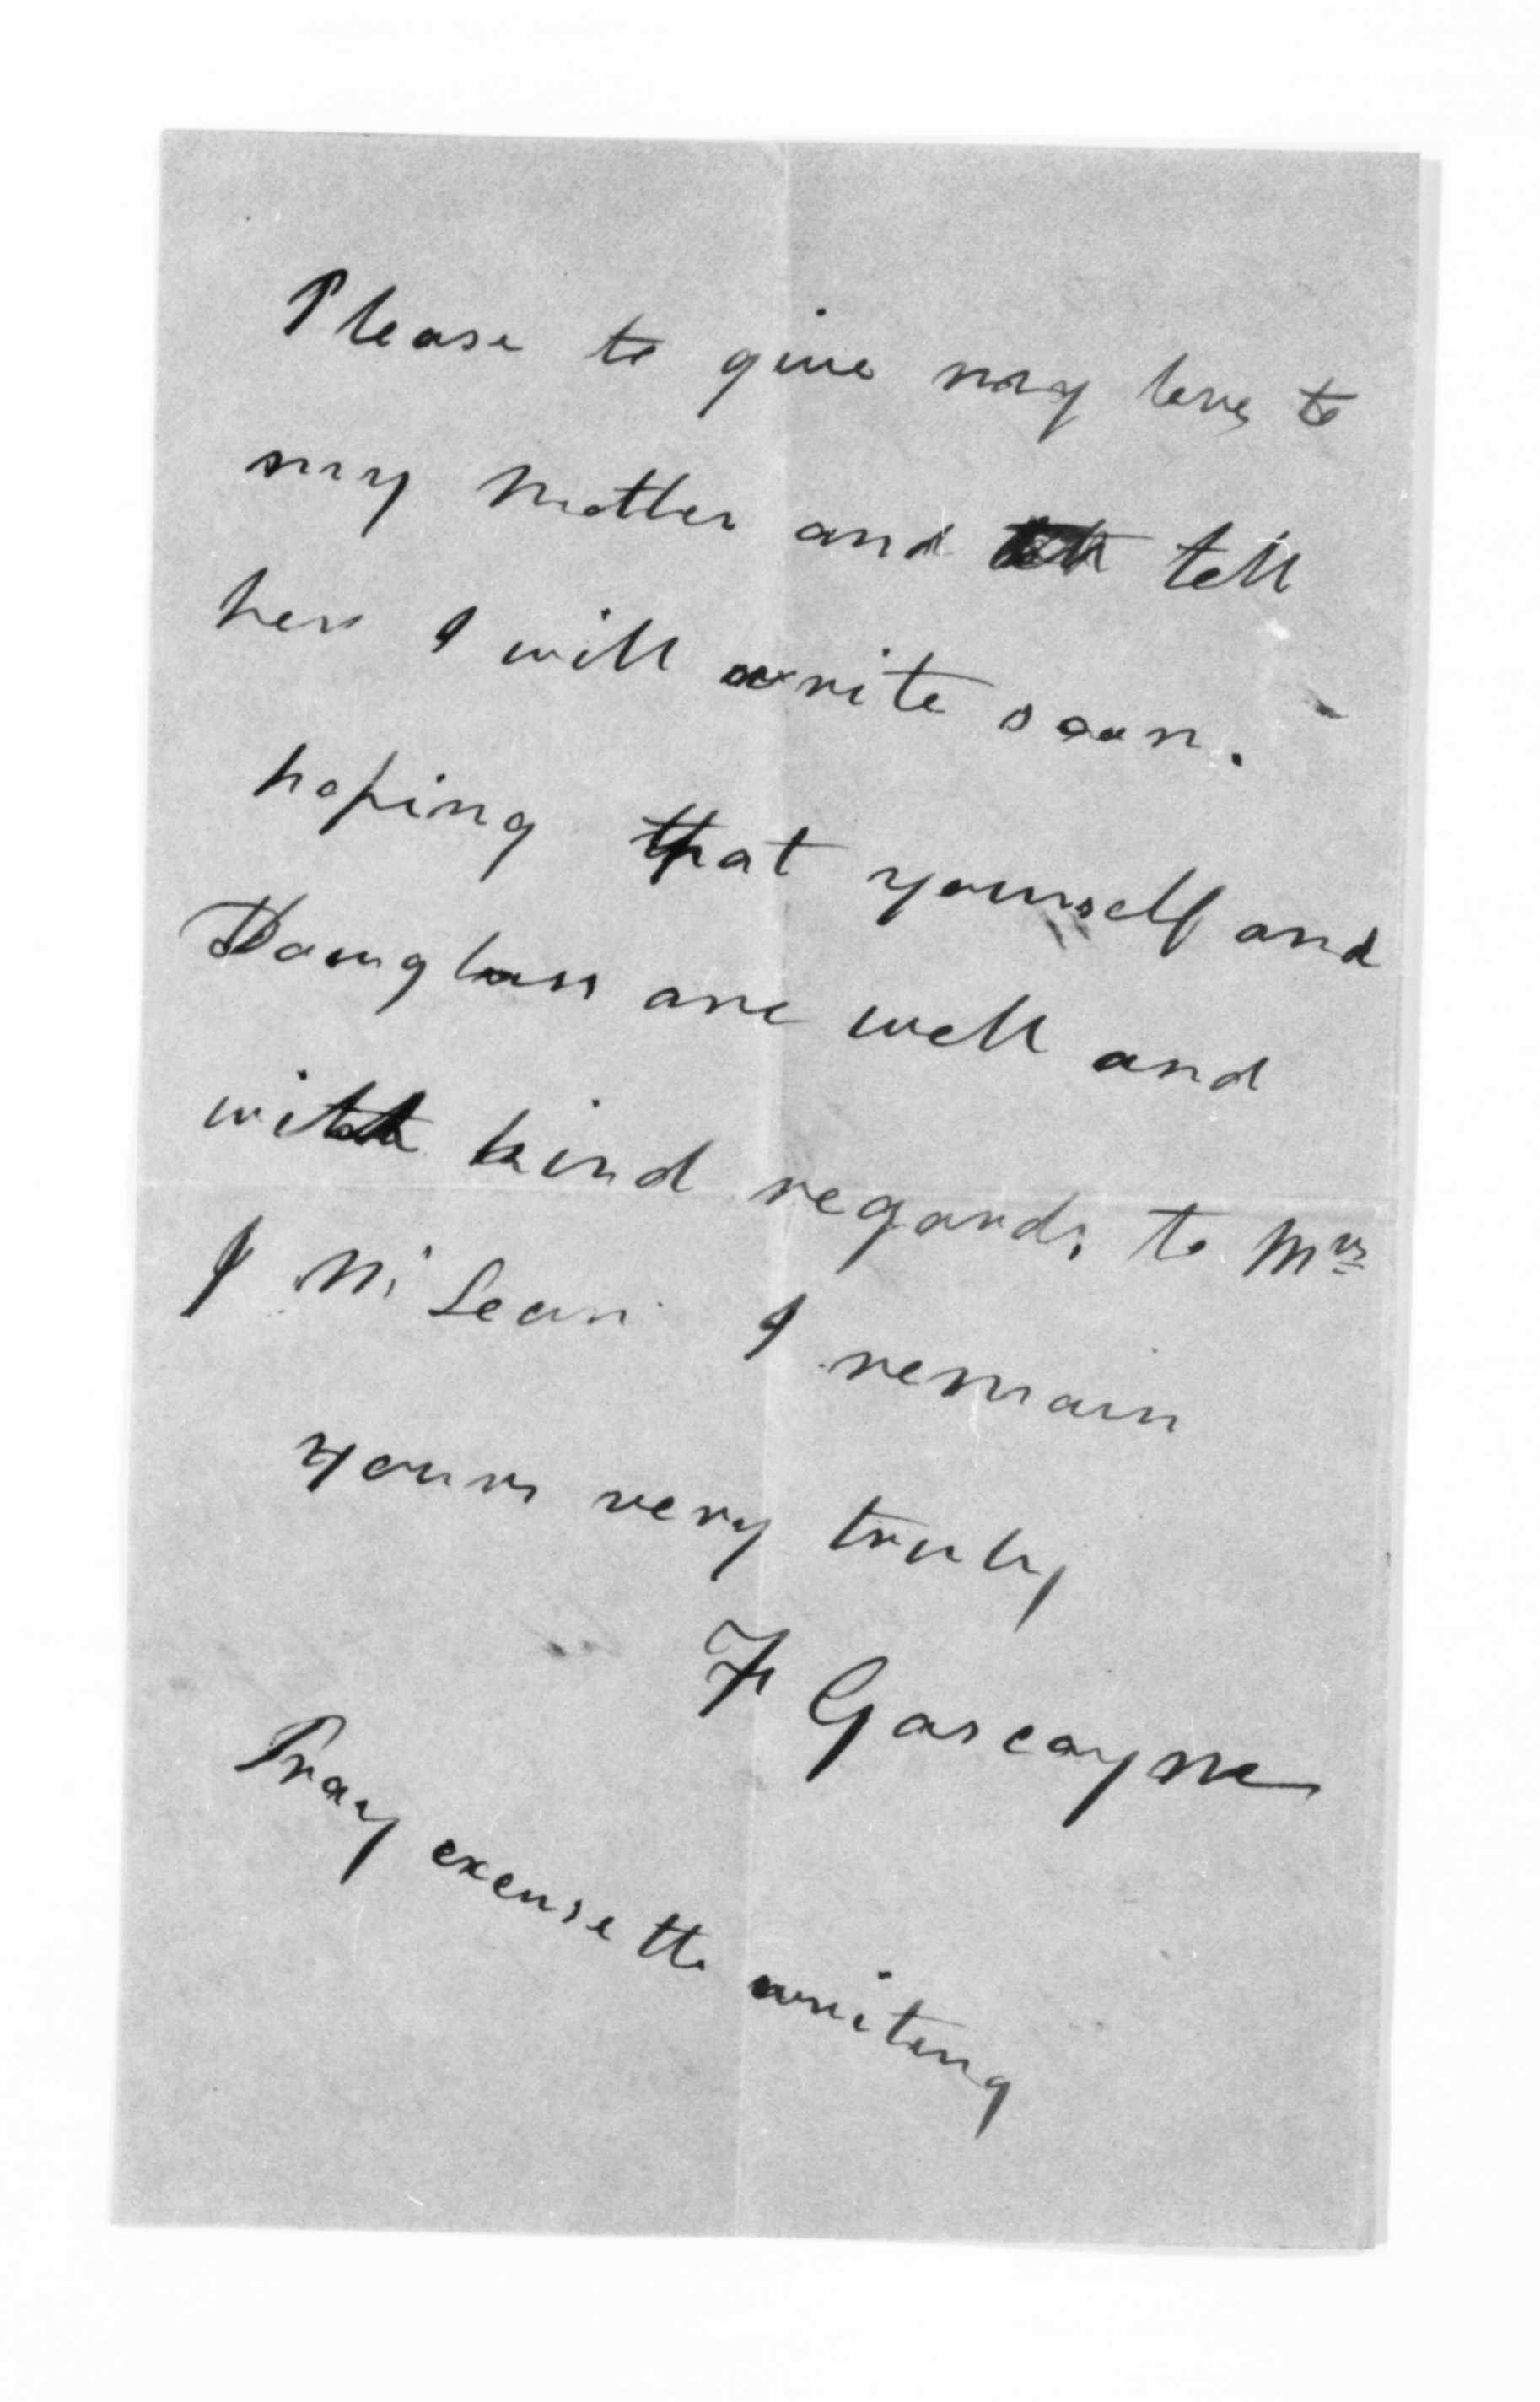 Please to give my love to
my Mother and tell
her I will write soon.
hoping that yourself and
Douglass are well and
with kind regards to Mrs
J McLean I remain
yours very truly
F Gascayne
Pray excuse the writing